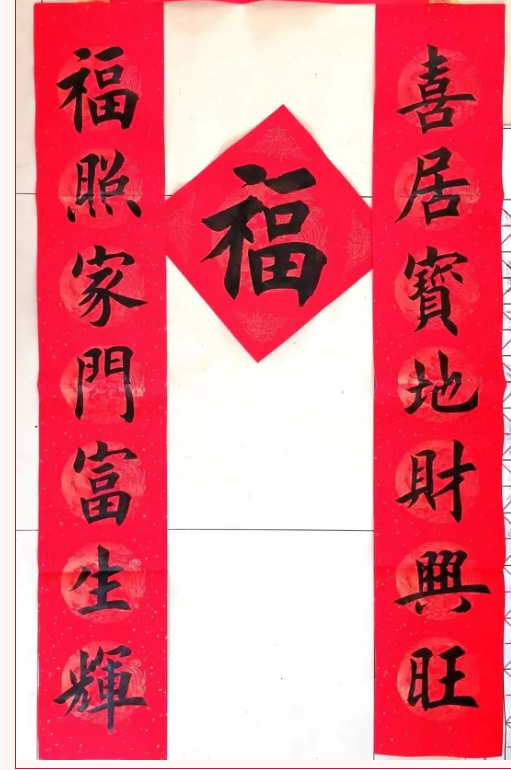 喜居寶地財興旺
福照家門富生輝
福